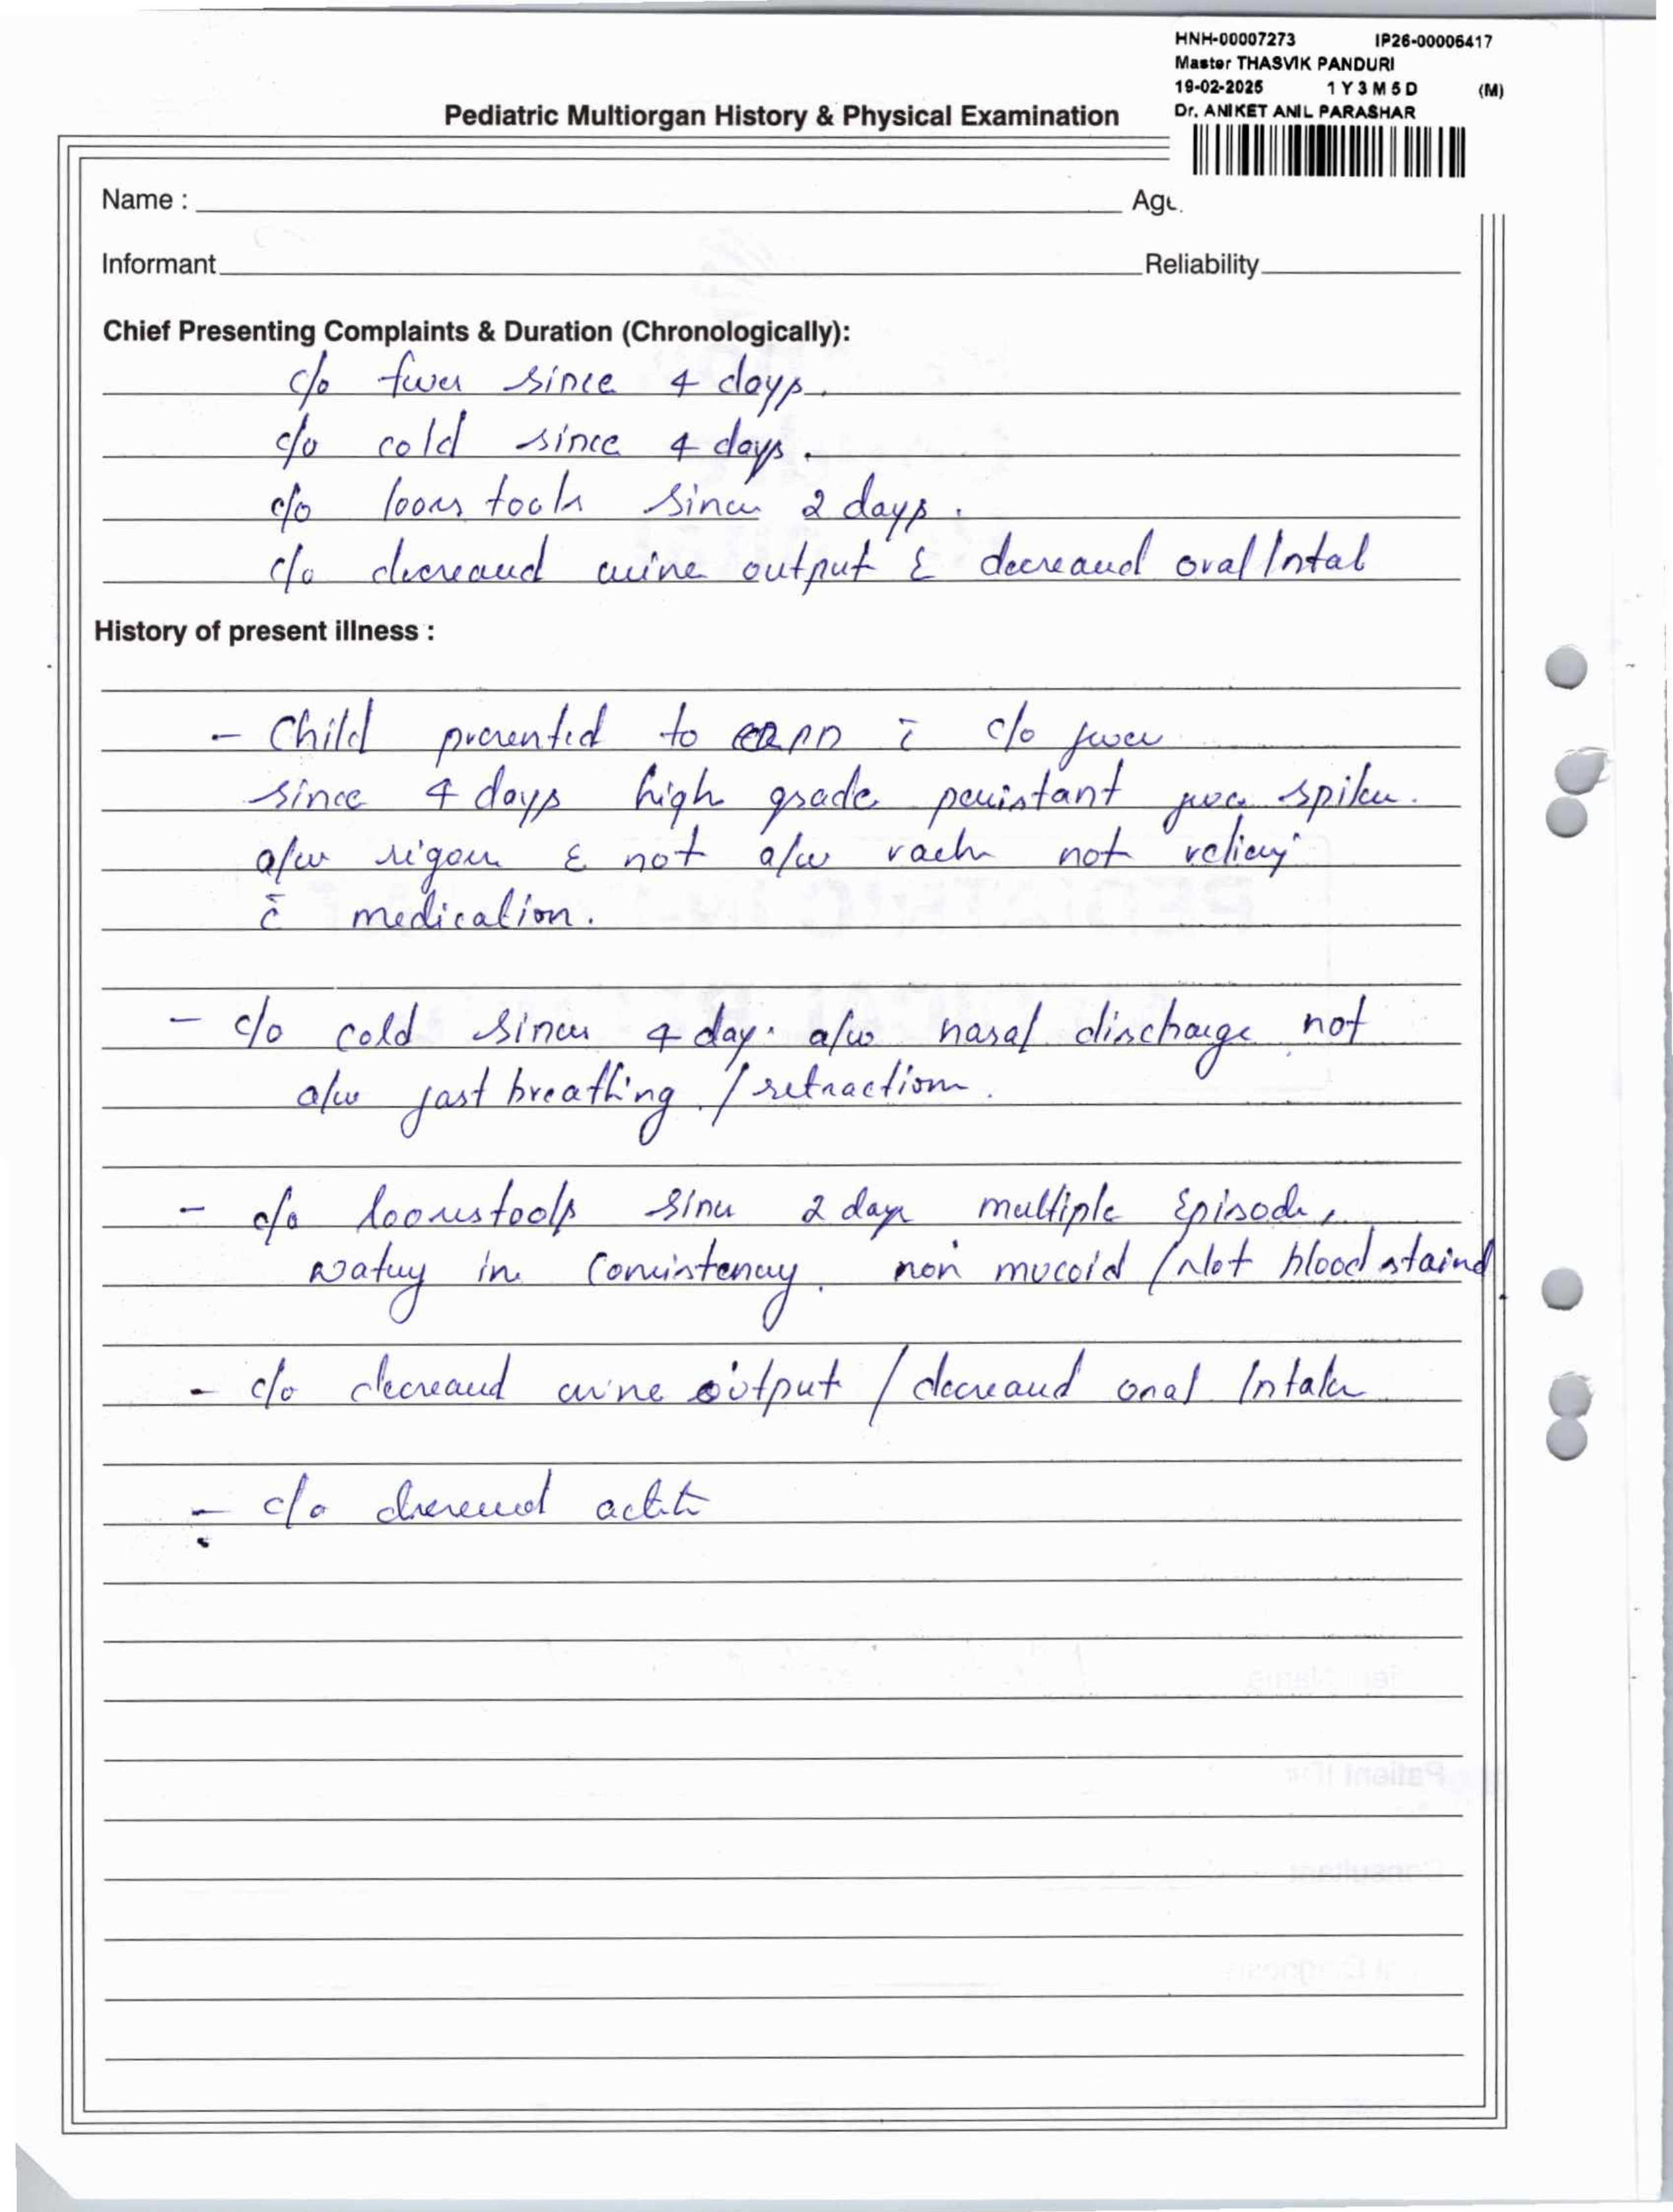 HNH-00007273 IP26-00006417
Master THASVIK PANDURI
19-02-2025 1Y3M5D (M)
Dr. ANIKET ANIL PARASHAR
Pediatric Multiorgan History & Physical Examination
Name : Age
Informant Reliability
Chief Presenting Complaints & Duration (Chronologically):
c/o fever since 4 days.
c/o cold since 4 days.
c/o loose stools since 2 days.
c/o decreased urine output & decreased oral Intak
History of present illness :
- Child presented to c̄ c/o fever
since 4 days high grade persistant fever spikes.
a/w rigors & not a/w rash not relieving
c̄ medication.
- c/o cold since 4 day. a/w nasal discharge not
a/w fast breathing / retractions.
- c/o loosestools since 2 days multiple Episodes,
watery in consistency. non mucoid / Not blood staind.
- c/o decreased urine output / decreased oral Intake
- c/o decreased
Patient ID: